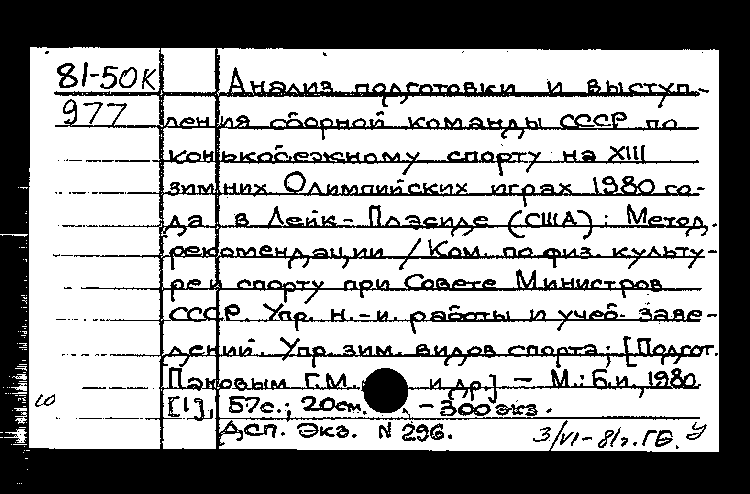 81-50К Анализ подготовки и выступ-
977 ления сборной команды СССР по
конькобежному спорту на XIII
зимних Олимпийских играх 1980 го-
да в Лейк-Плэсиде (США): Метод.
рекомендации / Ком. по физ. культу-
ре и спорту при Совете Министров
СССР. Упр. н.-и. работы и учеб. заве-
дений. Упр. зим. видов спорта; [Подгот.
Пановым Г.М. и др.] - М.: Б.и., 1980.
[1], 57с.; 20см. - 300 экз.
ДСП. Экз. N 296.
3/VI-81г. ГБ.